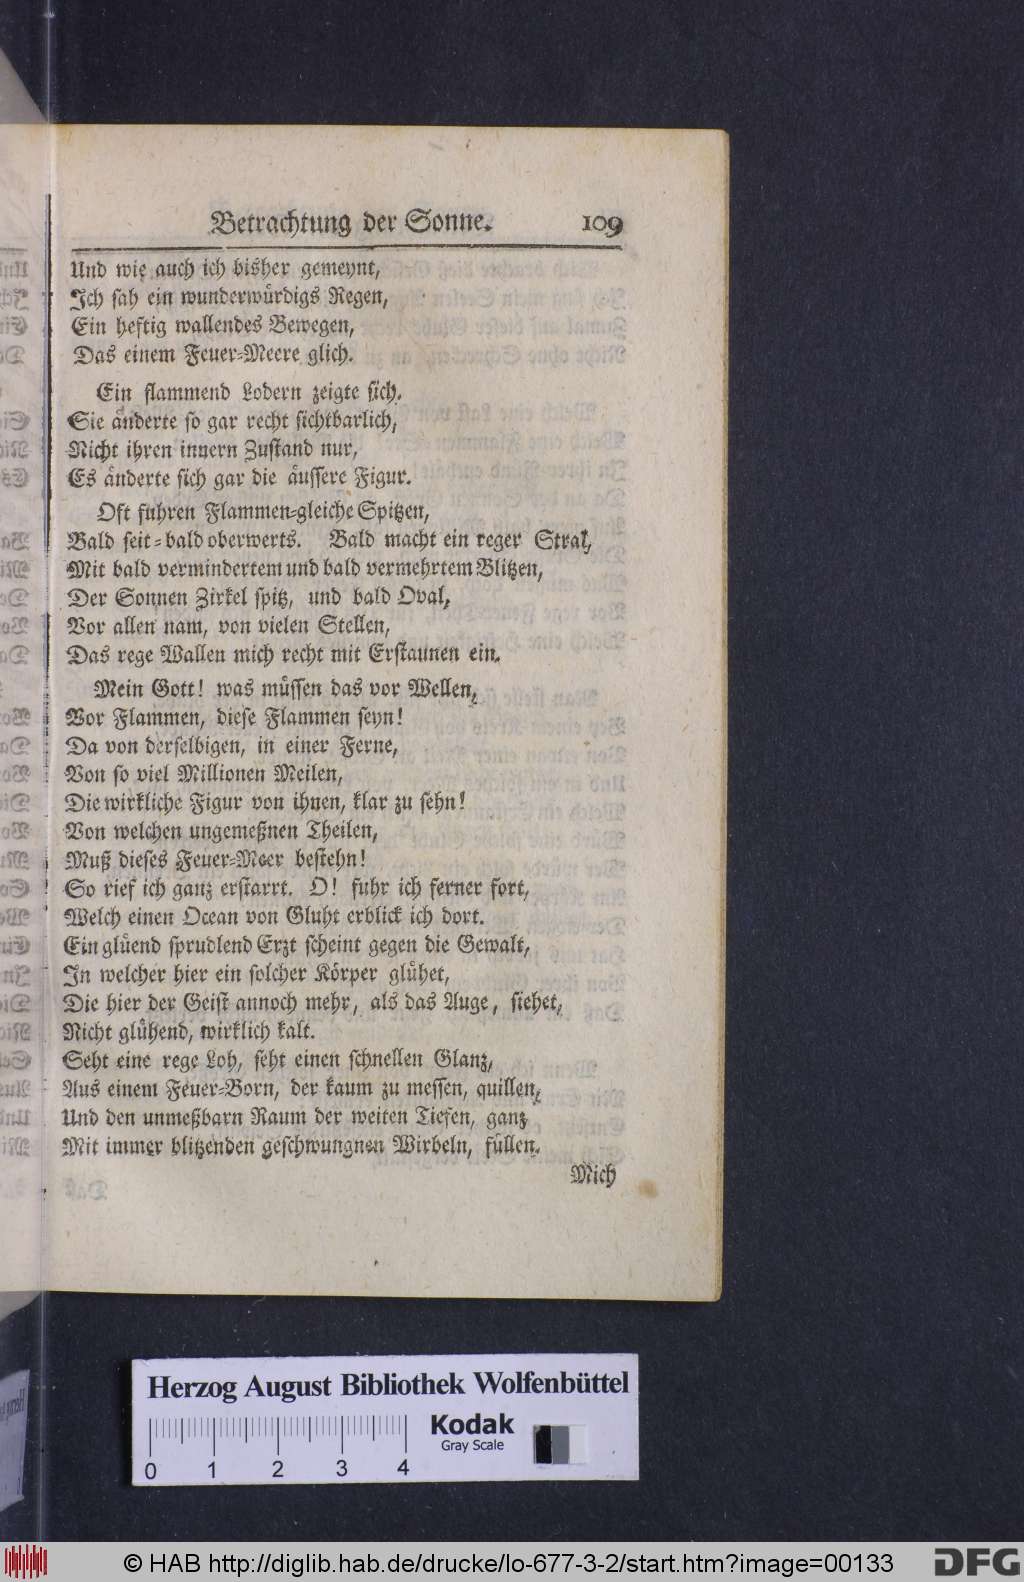 Betrachtung der Sonne. 109
Und wie auch ich bisher gemeynt,
Ich sah ein wunderwürdigs Regen,
Ein heftig wallendes Bewegen,
Das einem Feuer-Meere glich.
Ein flammend Lodern zeigte sich.
Sie änderte so gar recht sichtbarlich,
Nicht ihren innern Zustand nur,
Es änderte sich gar die äussere Figur.
Oft fuhren Flammen-gleiche Spitzen,
Bald seit-bald oberwerts. Bald macht ein reger Stral,
Mit bald vermindertem und bald vermehrtem Blitzen,
Der Sonnen Zirkel spitz, und bald Oval,
Vor allen nam, von vielen Stellen,
Das rege Wallen mich recht mit Erstaunen ein.
Mein Gott! was müssen das vor Wellen,
Vor Flammen, diese Flammen seyn!
Da von derselbigen, in einer Ferne,
Von so viel Millionen Meilen,
Die wirkliche Figur von ihnen, klar zu sehn!
Von welchen ungemeßnen Theilen,
Muß dieses Feuer-Meer bestehn!
So rief ich ganz erstarrt. O! fuhr ich ferner fort,
Welch einen Ocean von Gluht erblick ich dort.
Ein glüend sprudlend Erzt scheint gegen die Gewalt,
In welcher hier ein solcher Körper glühet,
Die hier der Geist annoch mehr, als das Auge, siehet,
Nicht glühend, wirklich kalt.
Seht eine rege Loh, seht einen schnellen Glanz,
Aus einem Feuer-Born, der kaum zu messen, quillen,
Und den unmeßbarn Raum der weiten Tiefen, ganz
Mit immer blitzenden geschwungnen Wirbeln, füllen.
Mich
Herzog August Bibliothek Wolfenbüttel
Kodak
Gray Scale
0 1 2 3 4
© HAB http://diglib.hab.de/drucke/lo-677-3-2/start.htm?image=00133
DFG